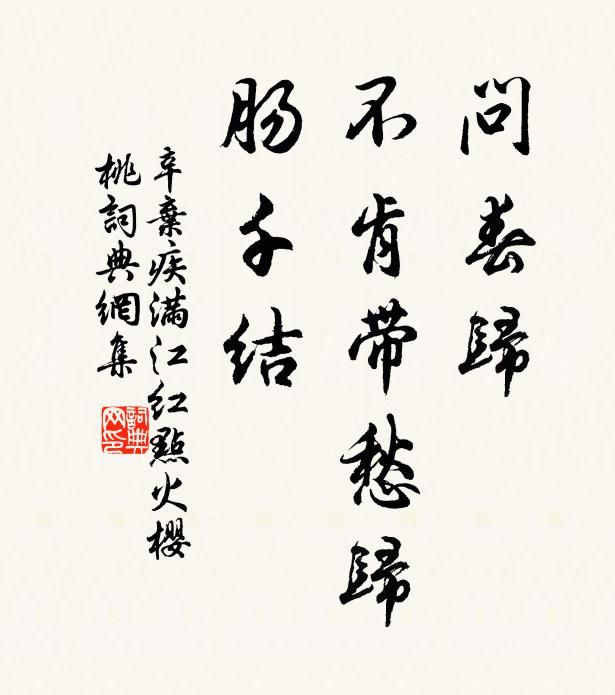 問春歸
不肯帶愁歸
肠千结
辛棄疾满江红點火櫻
桃詞典網集
詞典网印